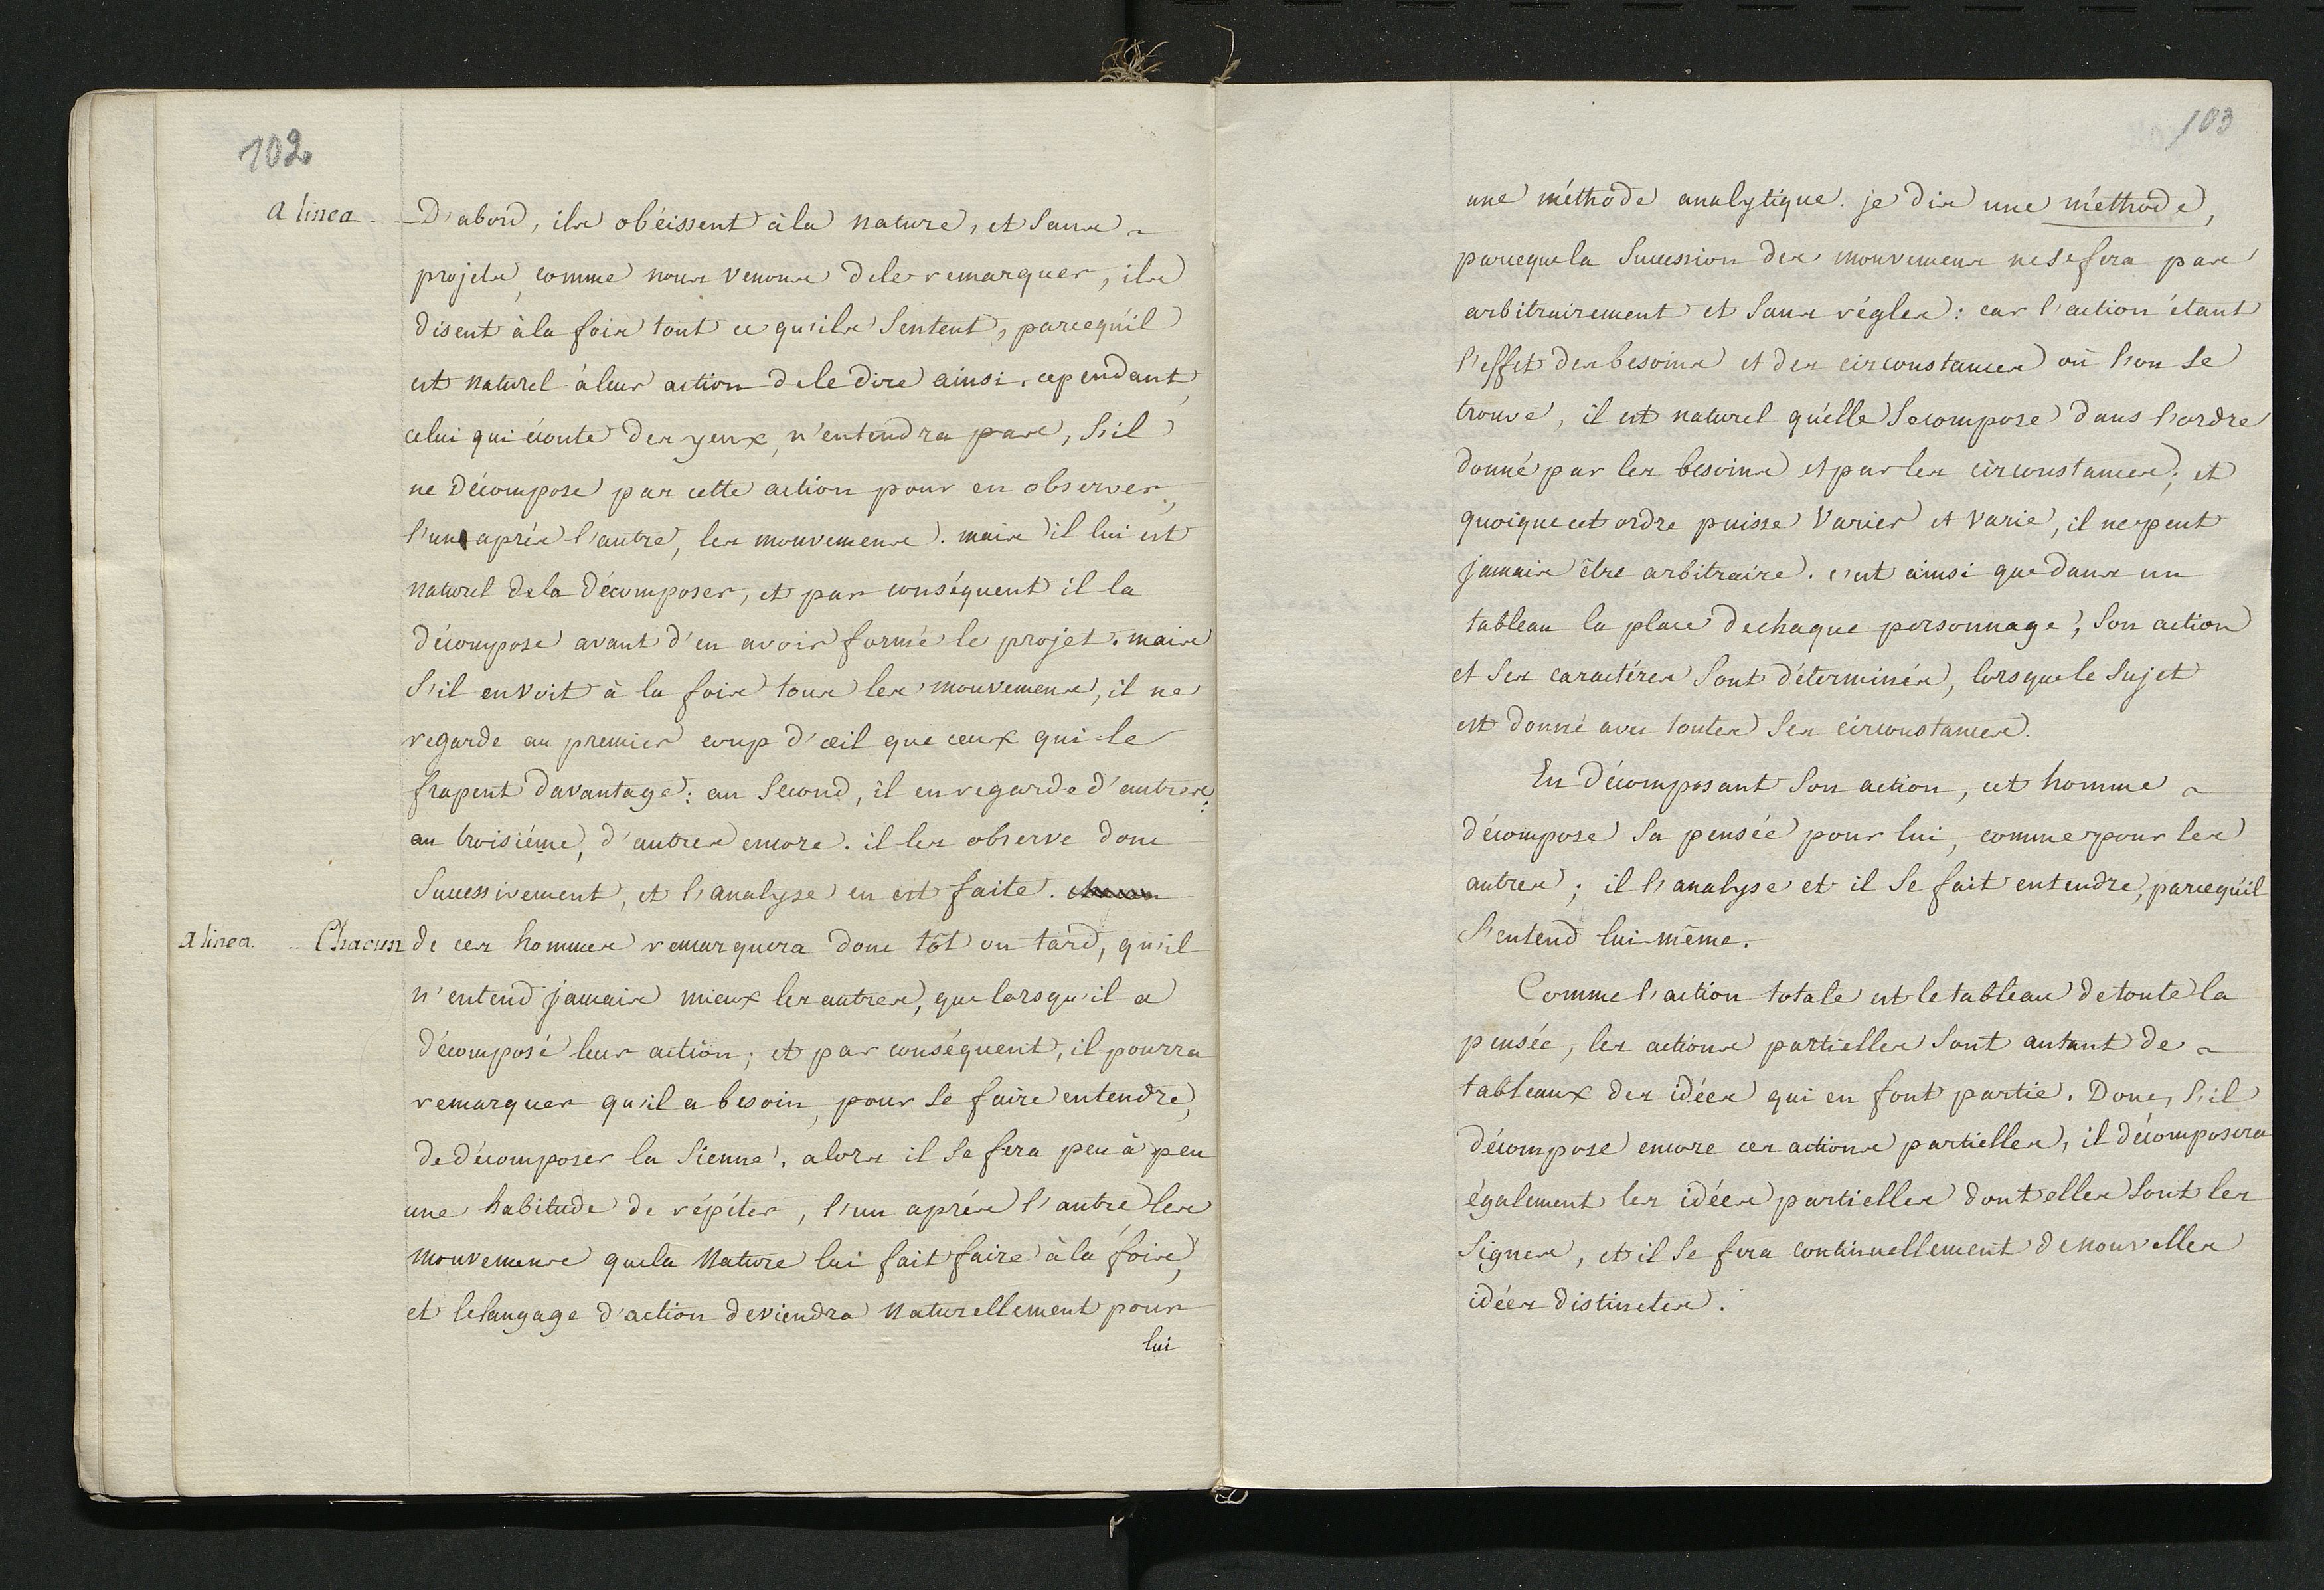 102
a linea. D'abord, ils obéissent à la nature, et sans
projets, comme nous venons de le remarquer, ils
disent à la fois tout ce qu'ils sentent, parcequ'il
est naturel à leur action de le dire ainsi. cependant,
celui qui écoute des yeux, n'entendra pas, s'il
ne décompose pas cette action pour en observer,
l'un après l'autre, les mouvemens. mais il lui est
naturel de la décomposer, et par conséquent il la
décompose avant d'en avoir formé le projet. mais
s'il en voit à la fois tous les mouvemens, il ne
regarde au premier coup d'œil que ceux qui le
frapent davantage: au second, il en regarde d'autres:
au troisiéme, d'autres encore. il les observe donc
successivement, et l'analyse en est faite. chacun
a linea. Chacun de ces hommes remarquera donc tôt ou tard, qu'il
n'entend jamais mieux les autres, que lorsqu'il a
décomposé leur action; et par conséquent, il pourra
remarquer qu'il a besoin, pour se faire entendre,
de décomposer la sienne. alors il se fera peu à peu
une habitude de répéter, l'un après l'autre les
mouvemens que la Nature lui fait faire à la fois,
et le langage d'action deviendra naturellement pour
lui
103
une méthode analytique. je dis une méthode,
parceque la succession des mouvemens ne se fera pas
arbitrairement et sans régles: car l'action étant
l'effet des besoins et des circonstances où l'on se
trouve, il est naturel qu'elle se compose dans l'ordre
donné par les besoins et par les circonstances; et
quoique cet ordre puisse varier et varie, il ne peut
jamais être arbitraire. c'est ainsi que dans un
tableau la place de chaque personnage, son action
et ses caractéres sont déterminés, lorsque le sujet
est donné avec toutes ses circonstances.
En décomposant son action, cet homme
décompose sa pensée pour lui, comme pour les
autres; il l'analyse et il se fait entendre, parcequ'il
s'entend lui-même.
Comme l'action totale est le tableau de toute la
pensée, les actions partielles sont autant de
tableaux des idées qui en font partie. Donc, s'il
décompose encore ces actions partielles, il décomposera
également les idées partielles dont elles sont les
signes, et il se fera continuellement de nouvelles
idées distinctes.